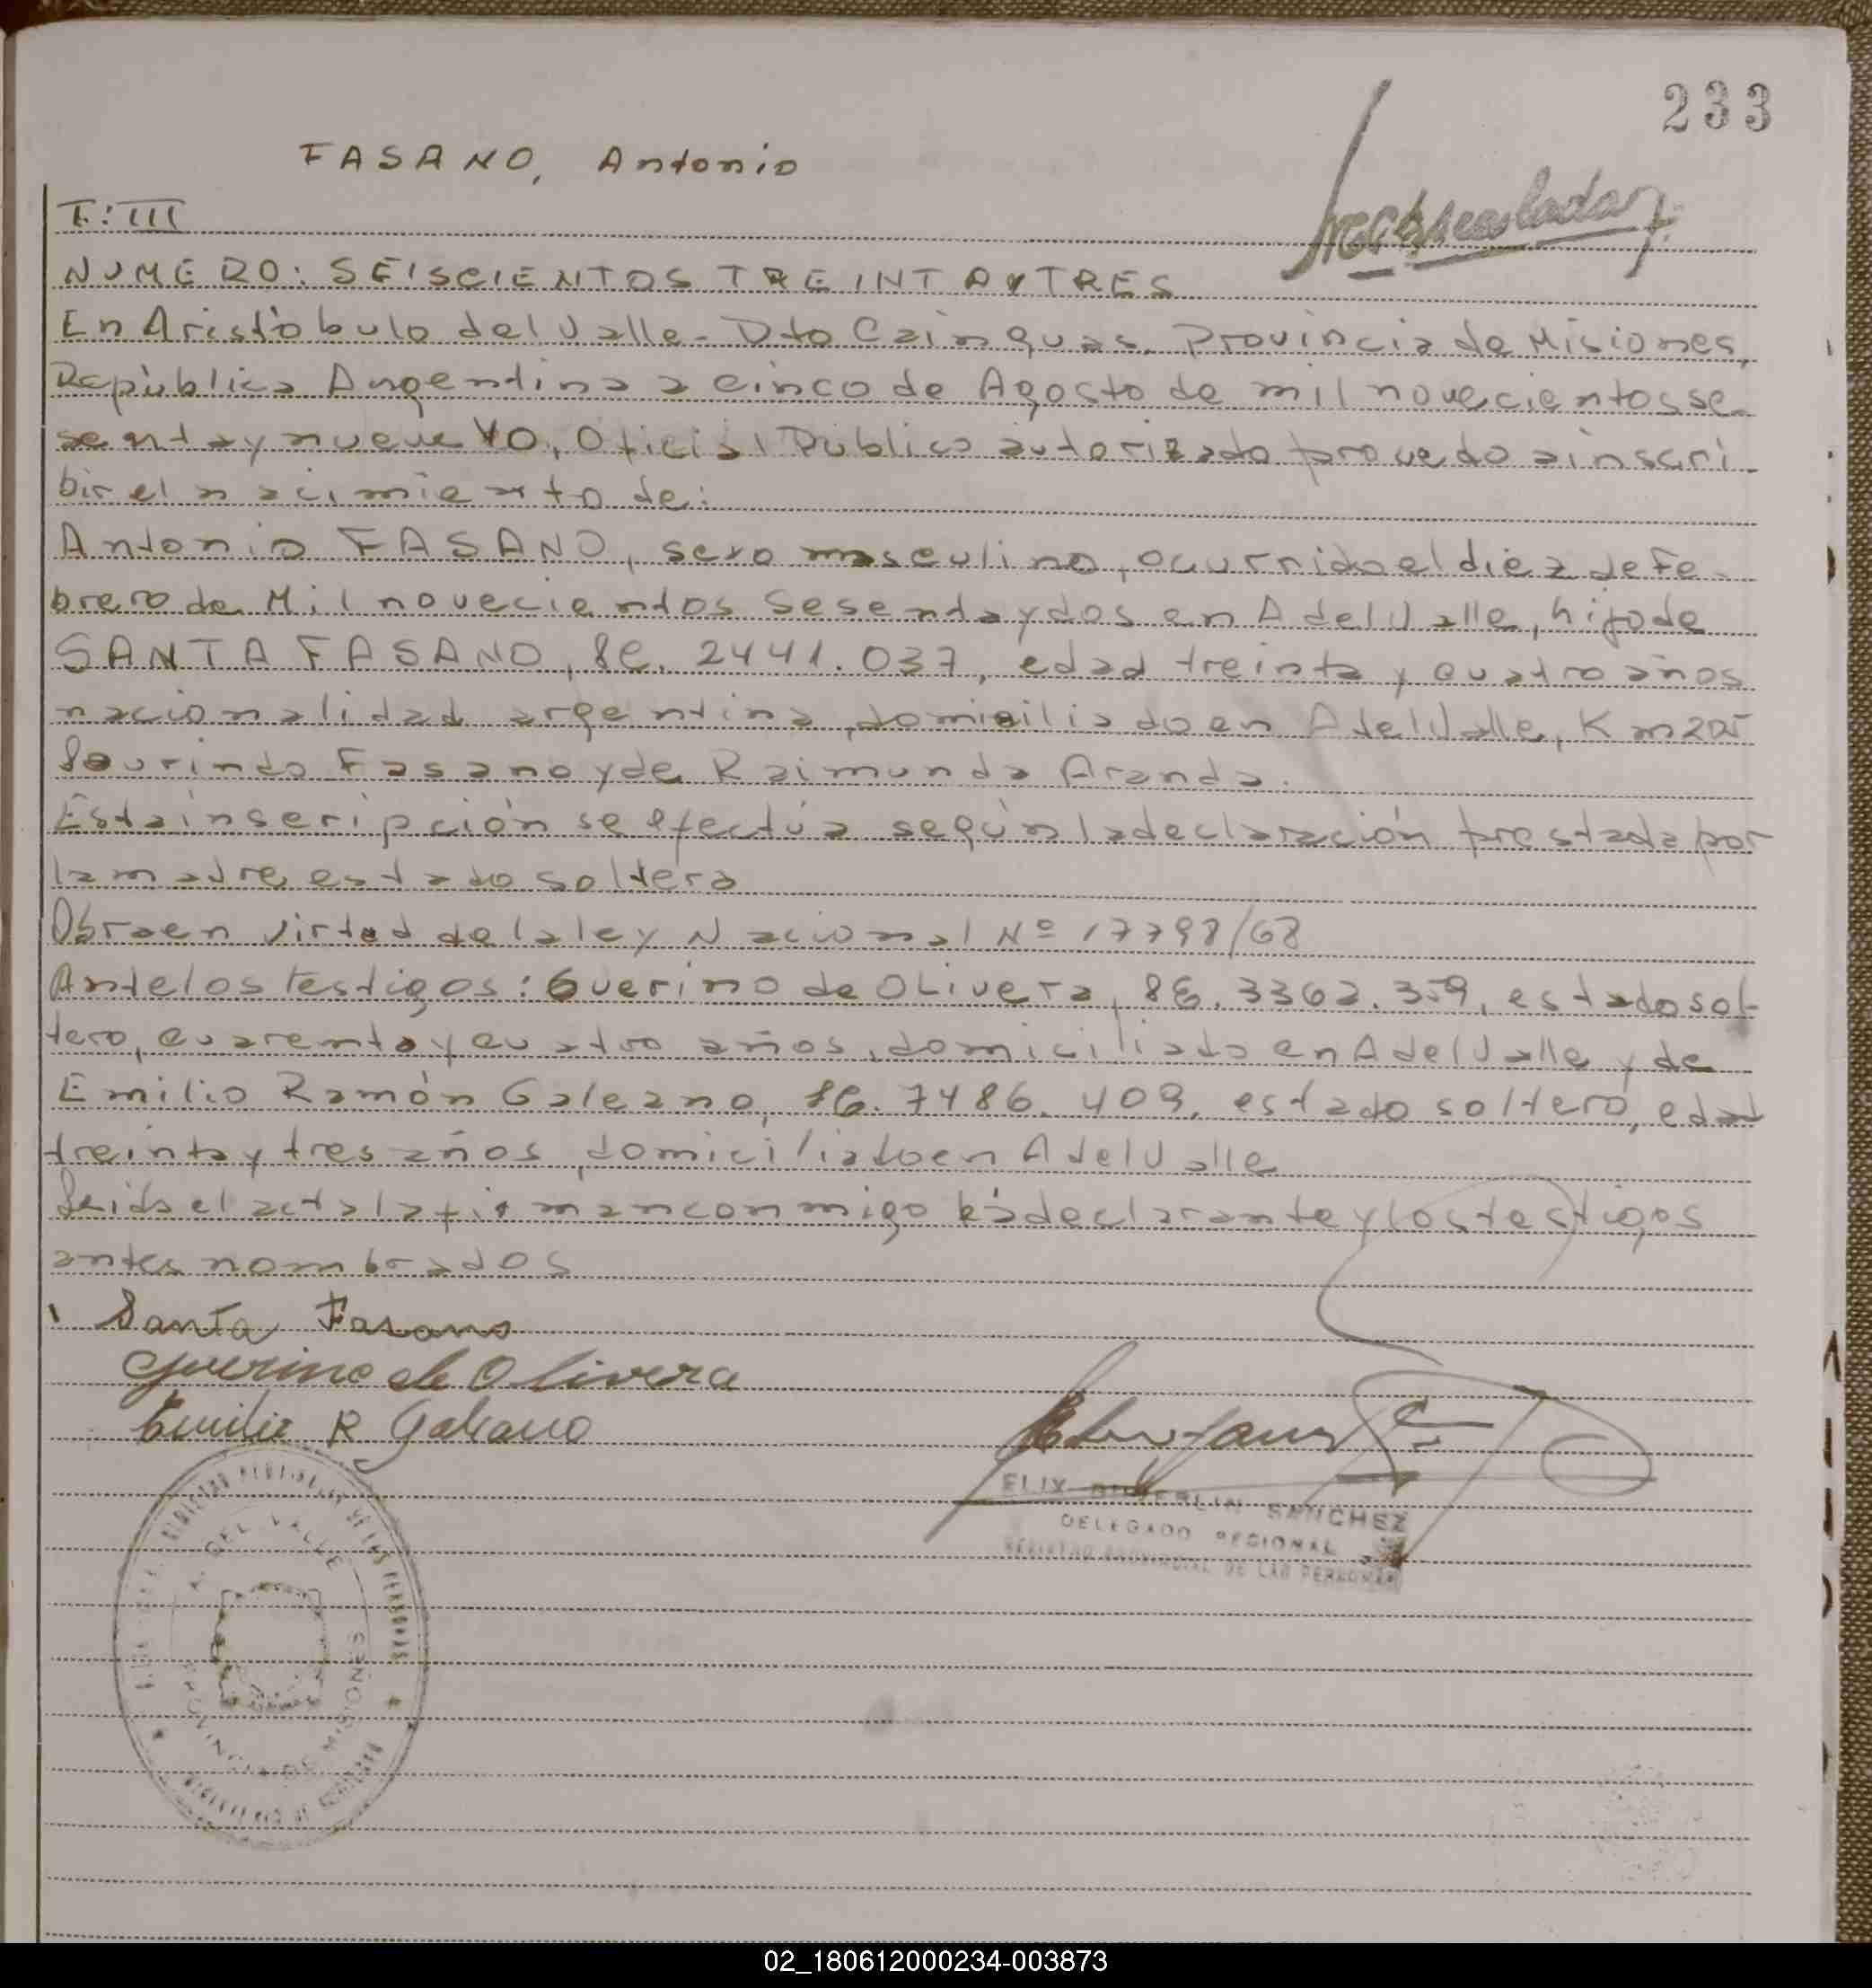 233
FASANO, Antonio
T: III
NUMERO: SEISCIENTOS TREINTA Y TRES
En Aristóbulo del Valle - Dto Cainguas, Provincia de Misiones,
República Argentina a cinco de Agosto de mil novecientos se-
senta y nueve YO, Oficial Público autorizado provedo a inscri-
bir el nacimiento de:
Antonio FASANO, sexo masculino, ocurrido el diez de Fe-
brero de Mil novecientos sesenta y dos en A del Valle, hijo de
SANTA FASANO, LC. 2441.037, edad treinta y cuatro años
nacionalidad argentina, domiciliado en A del Valle, Km
Laurindo Fasano y de Raimunda Aranda.
Esta inscripción se efectúa según la declaración prestada por
la madre estado soltera
Obra en virtud de la ley Nacional Nº 17798/68
Ante los testigos: Guerino de OLivera, LE. 3362.359, estado sol-
tero, cuarenta y cuatro años, domiciliado en A del Valle y de
Emilio Ramón Galeano, LE. 7486.409, estado soltero, edad
treinta y tres años, domiciliado en A del Valle
Leida el acta la firman conmigo la declarante y los testigos
antes nombrados
Santa Fasano
Guerino de Olivera
Emilio R Galeano
SANCHEZ
DELEGADO REGIONAL
REGISTRO PROVINCIAL DE LAS PERSONAS
A. DEL VALLE
PROVINCIA DE MISIONES
02_180612000234-003873